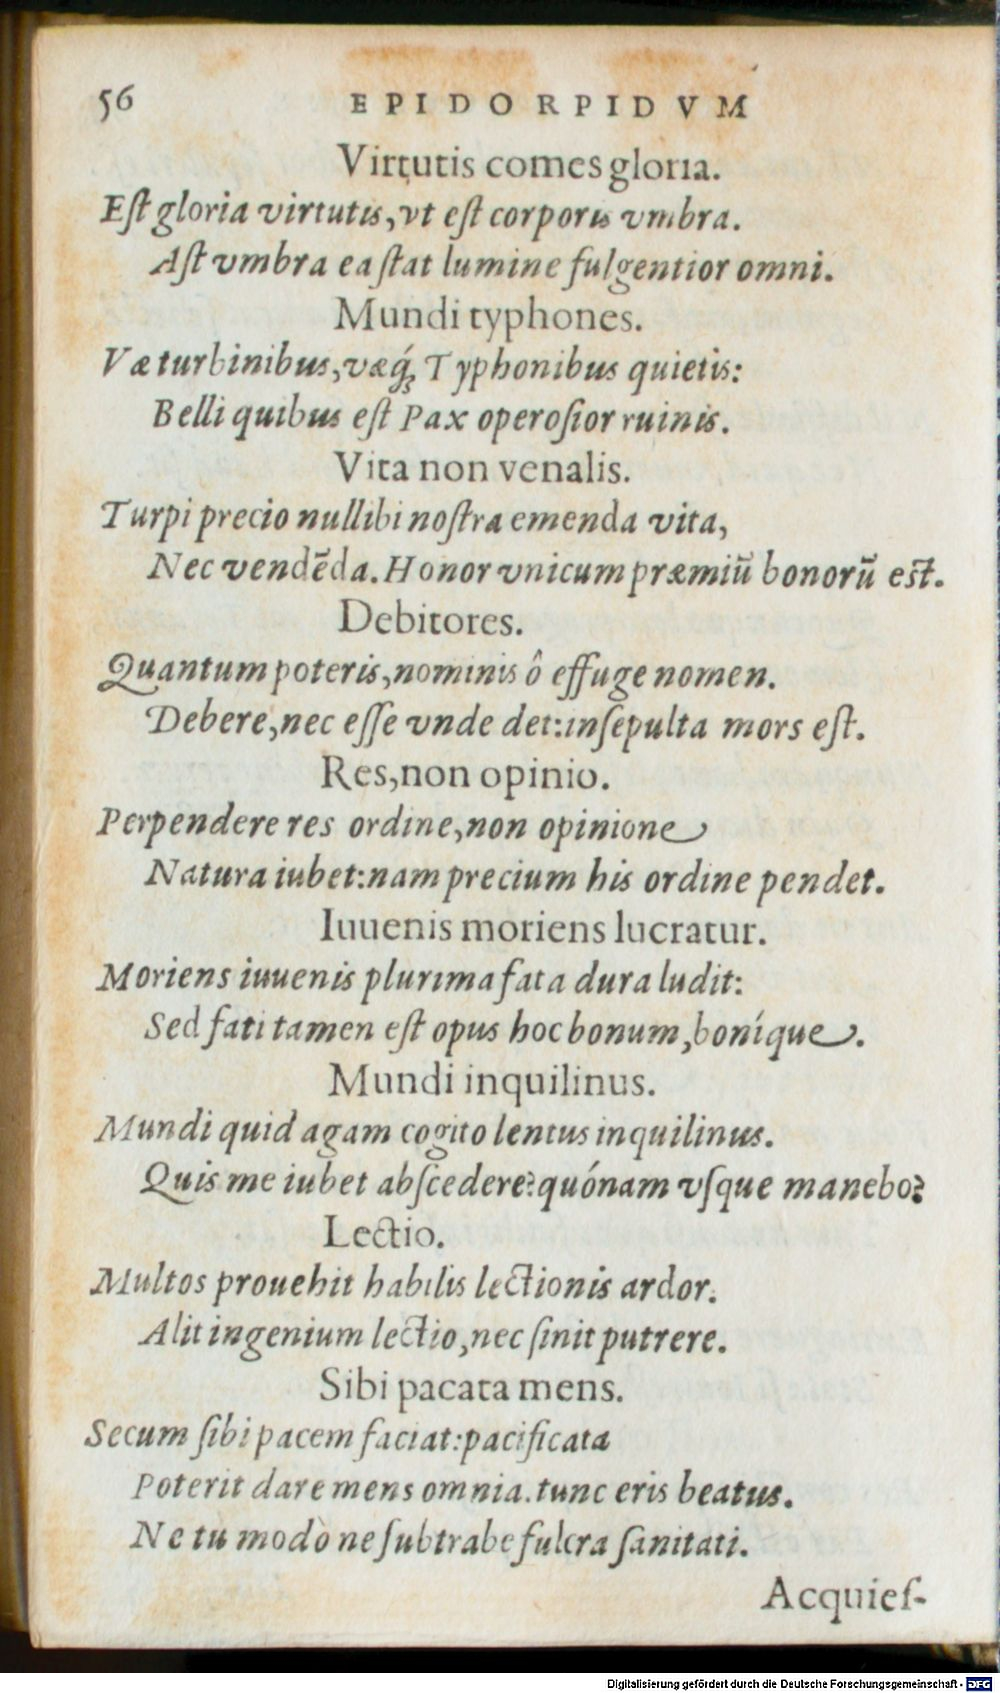 56 EPIDORPIDVM
Virtutis comes gloria.
Eſt gloria virtutis, vt eſt corporis vmbra.
Aſt vmbra ea ſtat lumine fulgentior omni.
Mundi typhones.
Væ turbinibus, væq́; Typhonibus quietis:
Belli quibus eſt Pax operoſior ruinis.
Vita non venalis.
Turpi precio nullibi noſtra emenda vita,
Nec vendẽda. Honor vnicum præmiũ bonorũ eſt.
Debitores.
Quantum poteris, nominis ô effuge nomen.
Debere, nec eſſe vnde det: inſepulta mors eſt.
Res, non opinio.
Perpendere res ordine, non opinione
Natura iubet: nam precium his ordine pendet.
Iuuenis moriens lucratur.
Moriens iuuenis plurima fata dura ludit:
Sed fati tamen eſt opus hoc bonum, boníque.
Mundi inquilinus.
Mundi quid agam cogito lentus inquilinus.
Quis me iubet abſcedere? quónam vſque manebo?
Lectio.
Multos prouehit habilis lectionis ardor.
Alit ingenium lectio, nec ſinit putrere.
Sibi pacata mens.
Secum ſibi pacem faciat: pacificata
Poterit dare mens omnia. tunc eris beatus.
Ne tu modò ne ſubtrahe fulcra ſanitati.
Acquieſ-
Digitalisierung gefördert durch die Deutsche Forschungsgemeinschaft - DFG